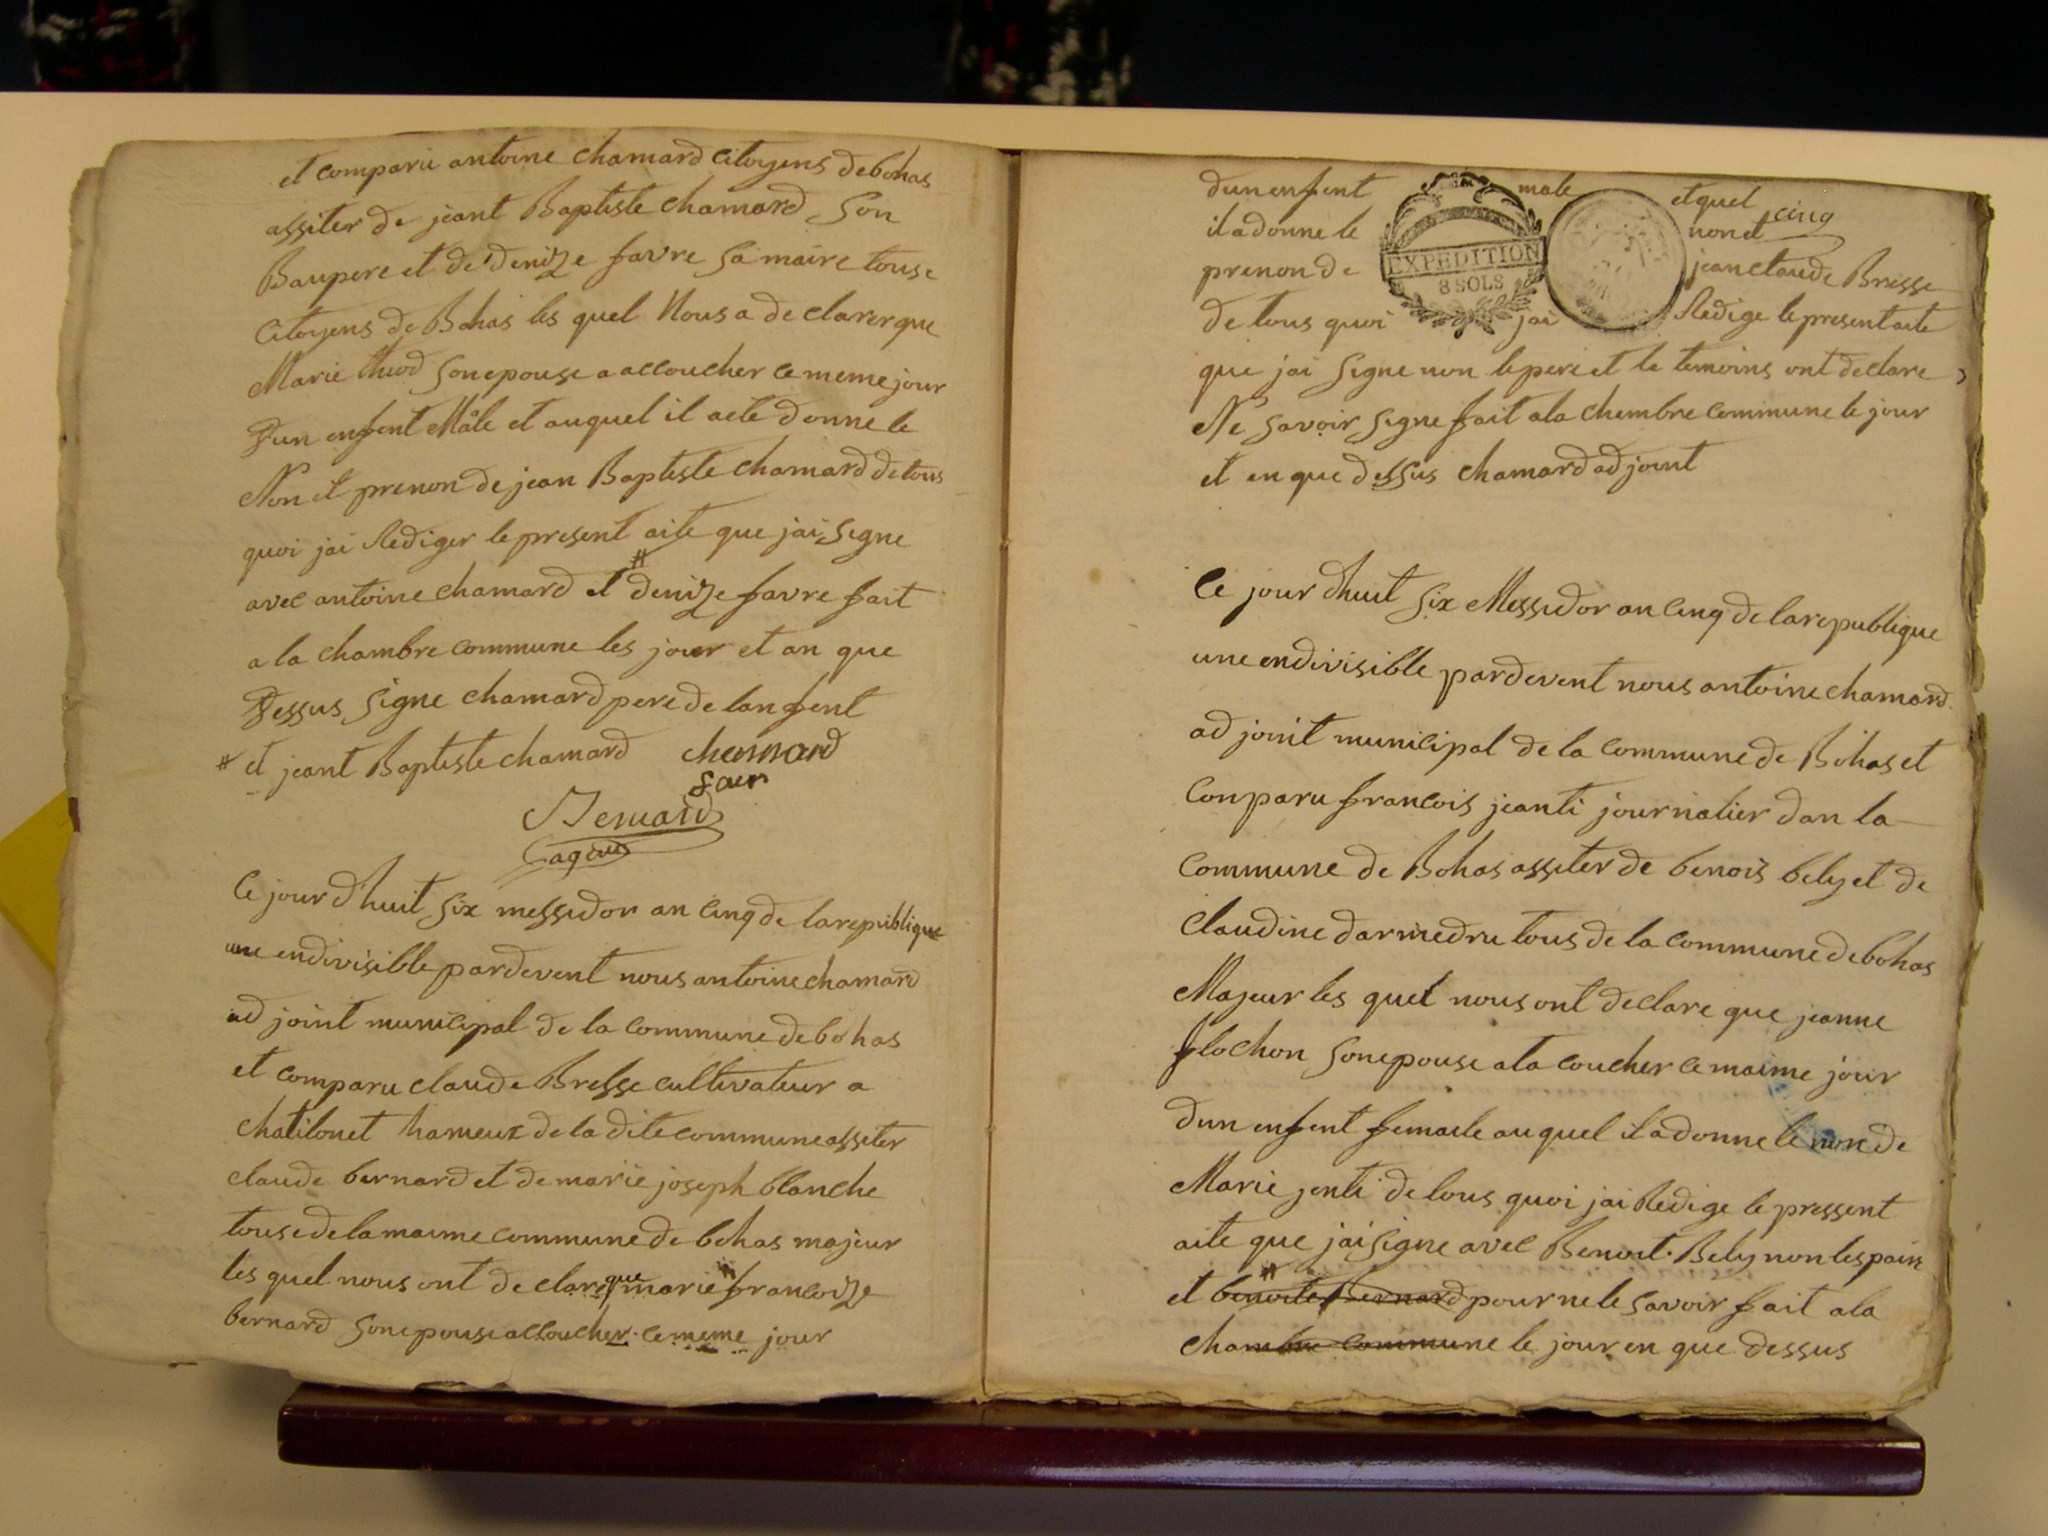 et comparu antoine chamard citoyens de bohas
assiter de jeant Baptiste chamard son
Baupere et de denize favre sa maire touse
citoyens de Bohas les quel Nous a de clarer que
Marie son epouse a accoucher ce meme jour
d'un enfent Mâle et auquel il aete donne le
Non et prenon de jean Baptiste chamard de tous
quoi jai Rediger le present aite que jai signe
avec antoine chamard et # denize favre fait
a la chambre commune les jour et an que
dessus signe chamard pere de lanfent
# et jeant Baptiste chamard chamard
Bernard
agent
Ce jour d'huit six messidor an cinq de la republique
une endivisible pardevent nous antoine chamard
ad joint municipal de la commune de bohas
et comparu claude Bresse cultivateur a
chatilonet hameux de la dite commune assiter
claude bernard et de marie joseph blanche
touse de la maime commune de bohas majeur
les quel nous ont de clare que marie francoize
bernard son epouse accoucher ce meme jour
dun enfent male et quel cinq
il a donne le non et
prenon de jean claude Bresse
EXPEDITION
8 SOLS
de tous quoi jai Redige le present aite
que jai signe non le pere et le temoins ont declare
Ne savoir signe fait a la chembre commune le jour
et en que dessus chamard adjoint
Ce jour dhuit six Messidor an cinq de la republique
une endivisible pardevent nous antoine chamard
ad joint municipal de la commune de Bohas et
conparu francois jeanti journalier dan la
commune de Bohas assiter de benois bely et de
claudine darmedru tous de la commune de bohas
Majeur les quel nous ont declare que jeanne
flochon son epouse ata coucher ce maime jour
dun enfent femaele au quel il a donne le non de
Marie jenti de tous quoi jai Redige le pressent
aite que jai signe avec Benoit Bely non les pair
et # benoite Bernard pour ne le savoir fait a la
chambre commune le jour en que dessus